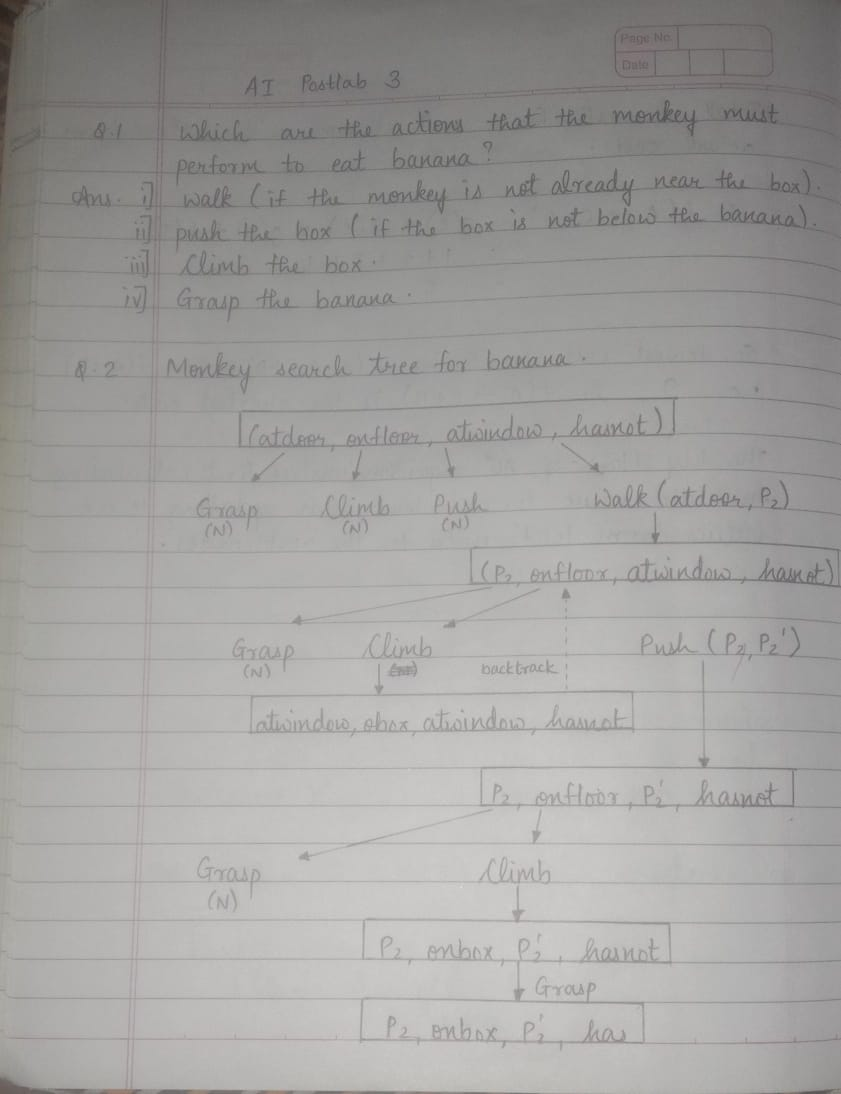 Page No.
Date
AI Postlab 3
Q.1 Which are the actions that the monkey must
perform to eat banana?
Ans. i] Walk (if the monkey is not already near the box).
ii] push the box (if the box is not below the banana).
iii] Climb the box.
iv] Grasp the banana.
Q.2 Monkey search tree for banana.
(atdoor, onfloor, atwindow, hasnot)
Grasp Climb Push Walk (atdoor, P2)
(N) (N) (N)
(P2, onfloor, atwindow, hasnot)
Grasp Climb Push (P2, P2')
(N) backtrack
atwindow, obox, atwindow, hasnot
P2, onfloor, P2', hasnot
Grasp Climb
(N)
P2, onbox, P2', hasnot
Grasp
P2, onbox, P2', has